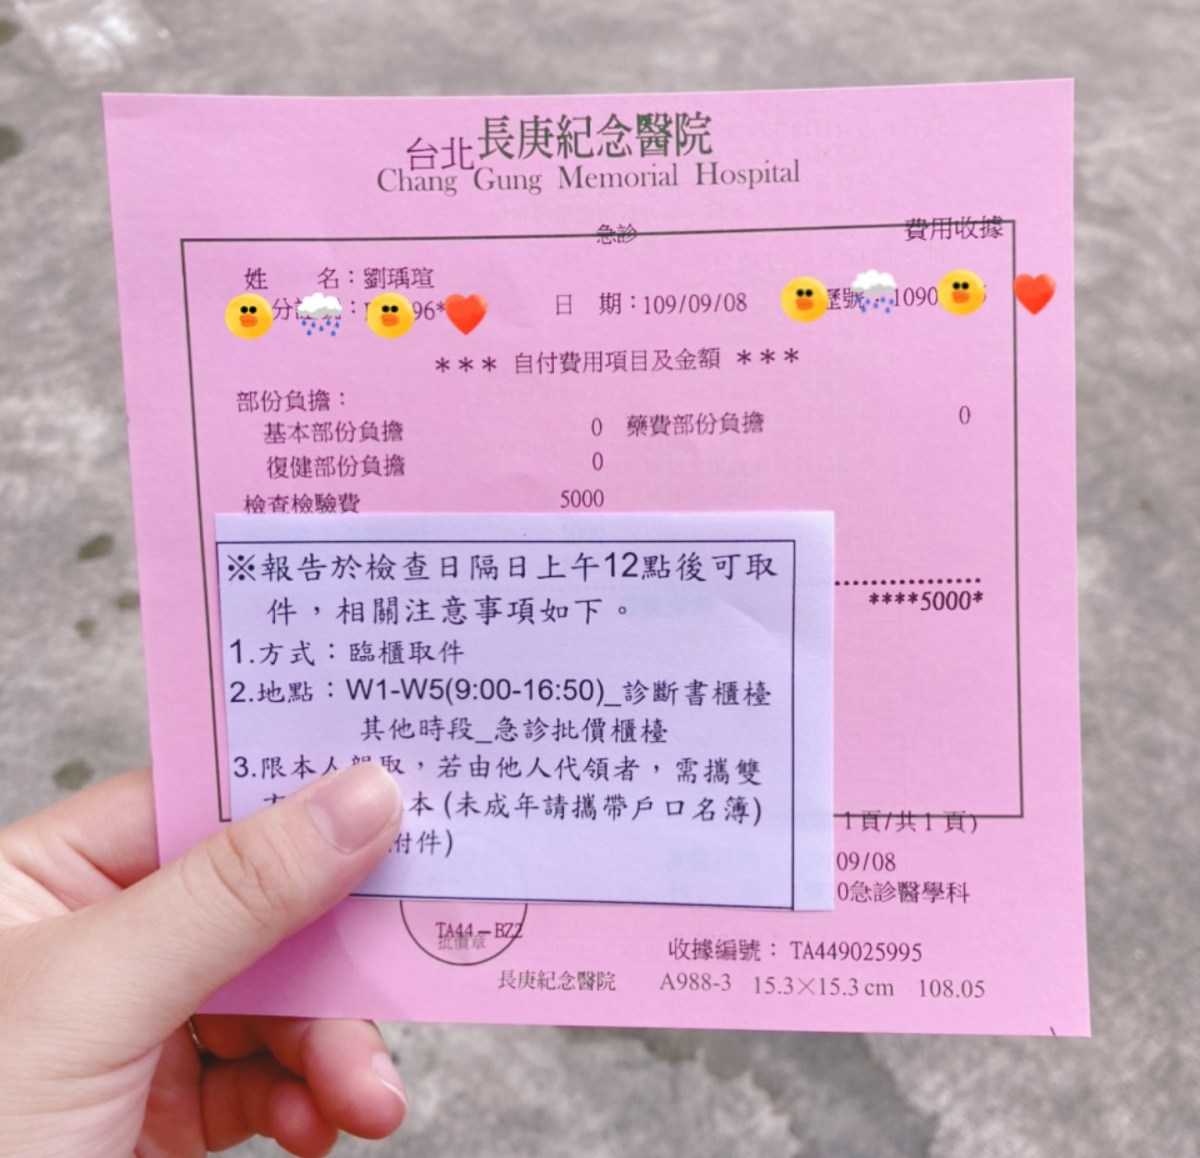 台北長庚紀念醫院
Chang Gung Memorial Hospital
急診 費用收據
姓 名：劉瑀瑄
日 期：109/09/08 歷號：1090
96*
*** 自付費用項目及金額 ***
部份負擔：
基本部份負擔 0 藥費部份負擔 0
復健部份負擔 0
檢查檢驗費 5000
****5000*
※報告於檢查日隔日上午12點後可取
件，相關注意事項如下。
1.方式：臨櫃取件
2.地點：W1-W5(9:00-16:50)_診斷書櫃檯
其他時段_急診批價櫃檯
3.限本人親取，若由他人代領者，需攜雙
本(未成年請攜帶戶口名簿)
附件)
1頁/共1頁)
09/08
0急診醫學科
TA44－BZ2
批價章
收據編號：TA449025995
長庚紀念醫院 A988-3 15.3×15.3cm 108.05